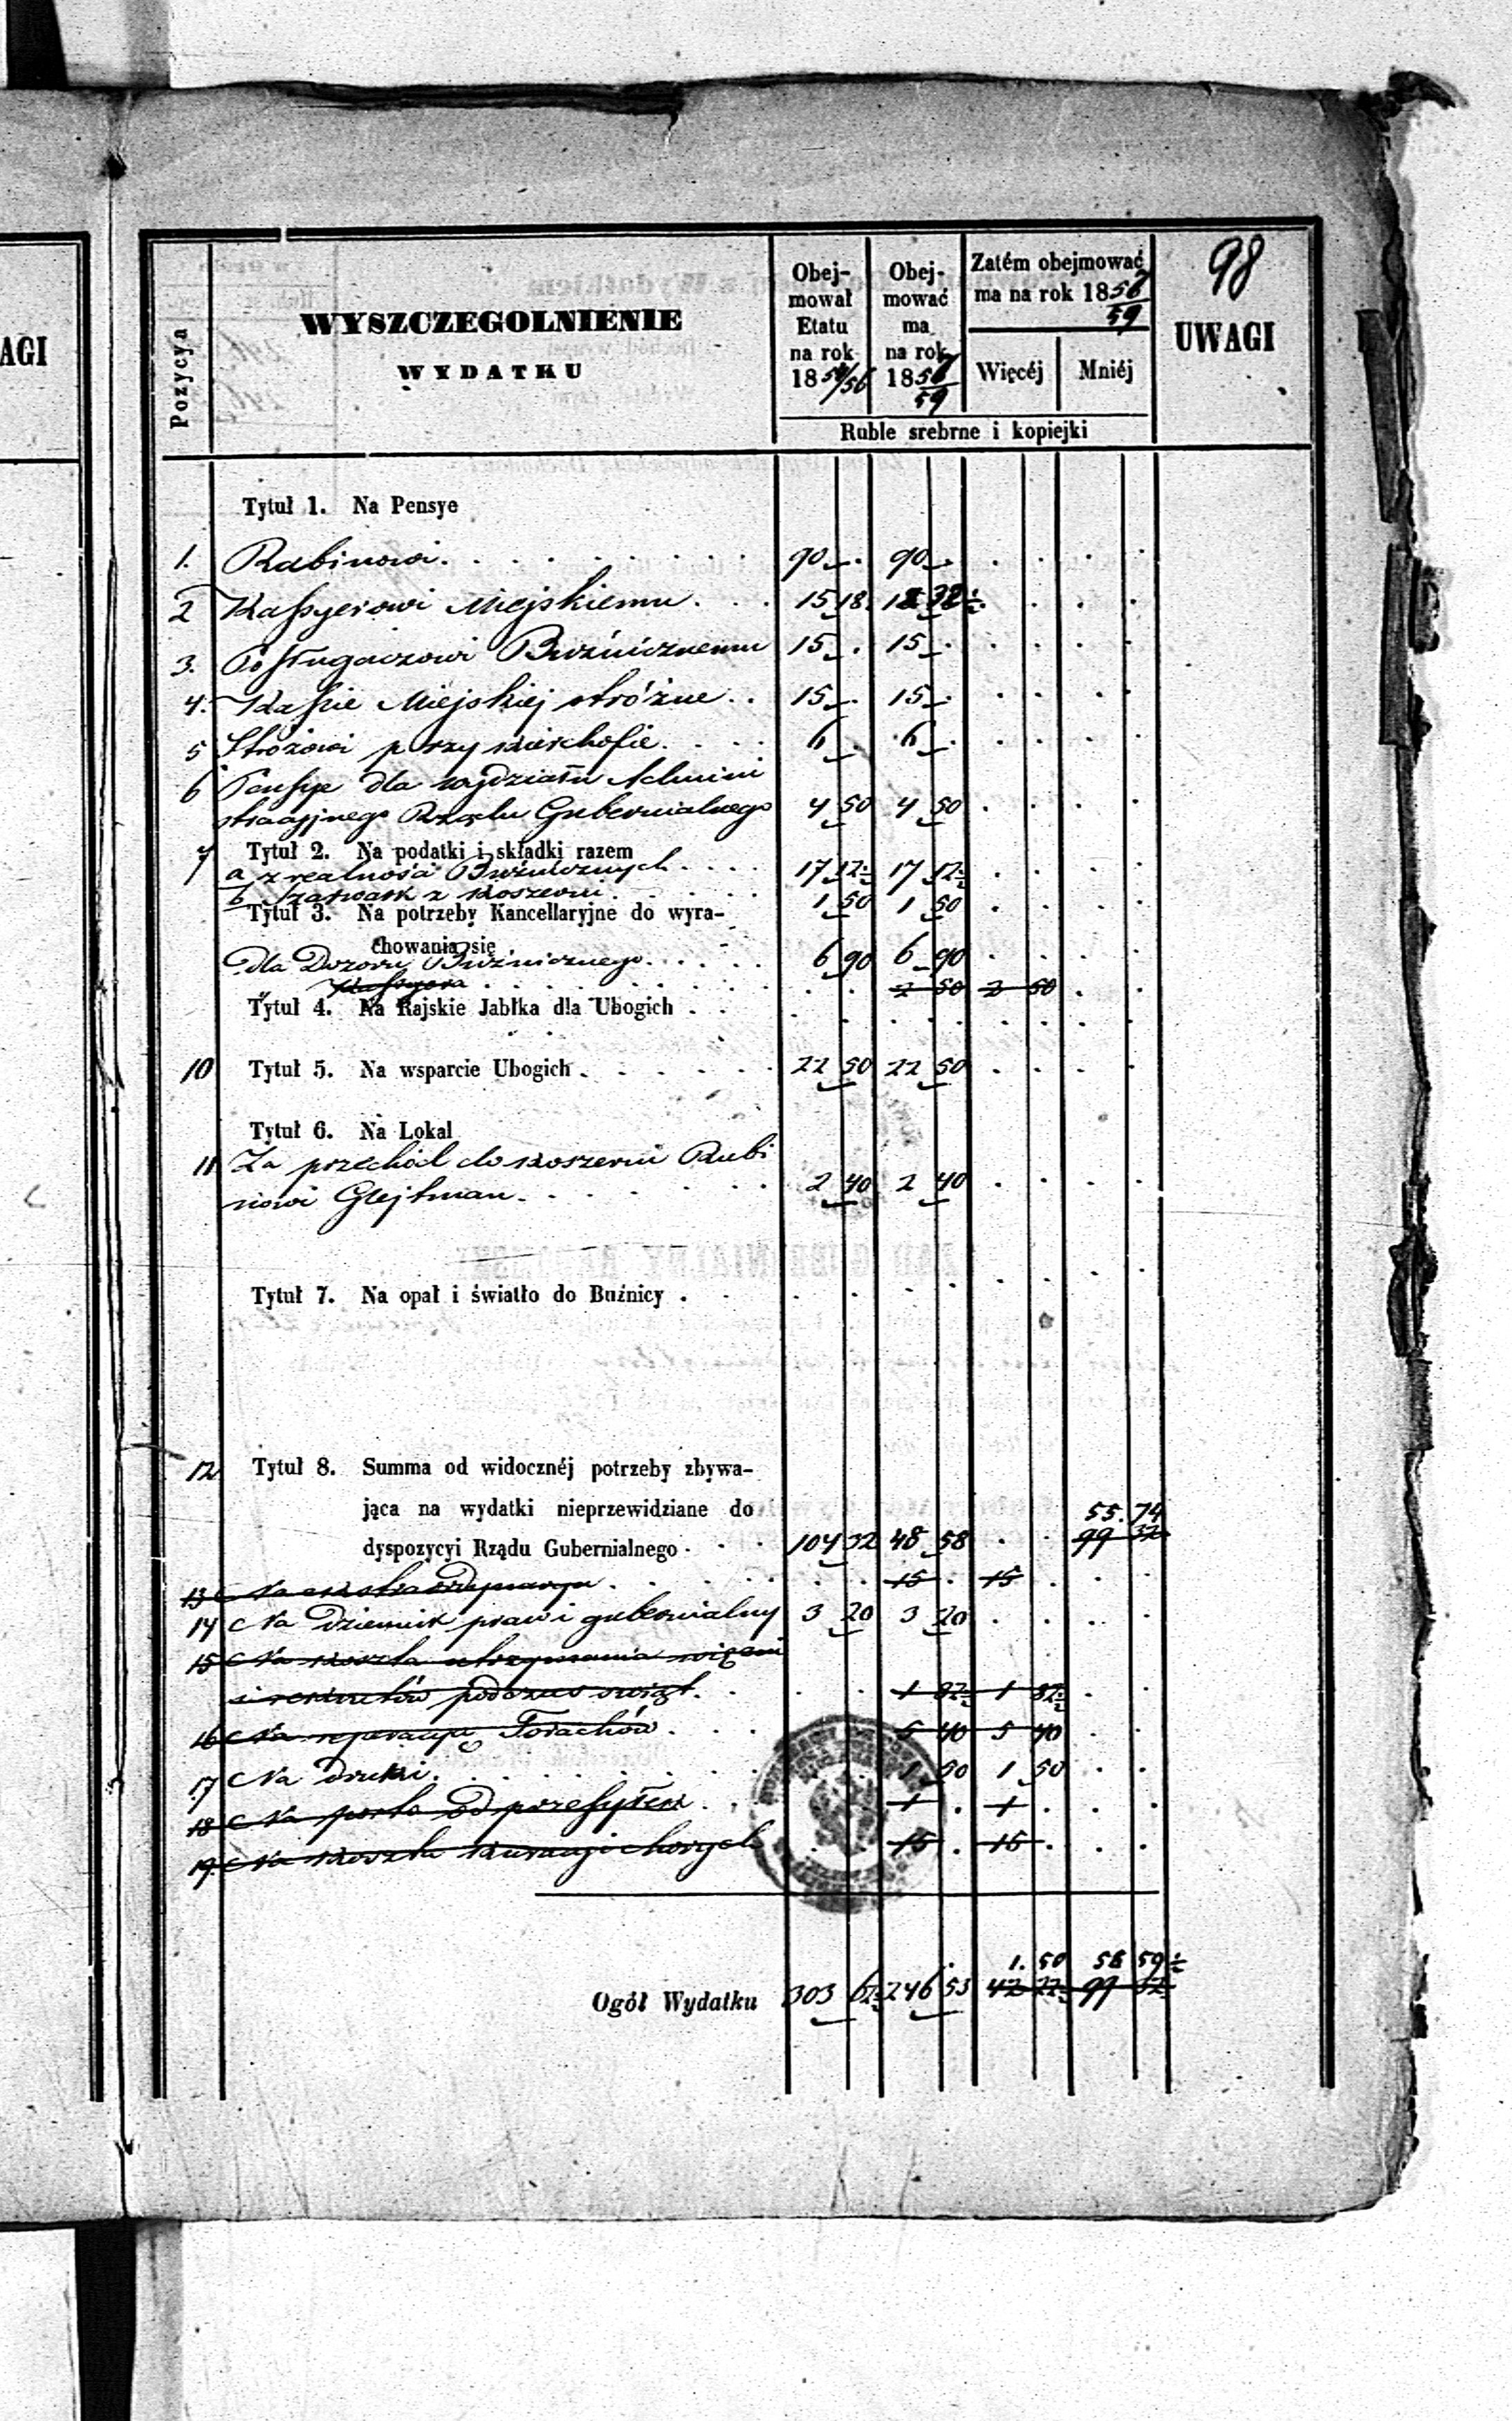 98
AGI
Pozycya
WYSZCZEGOLNIENIE
WYDATKU
Obej-
mował
Etatu
na rok
1854/56
Obej-
mować
ma
na rok
1857/59
Zatém obejmować
ma na rok 1857/59
Więcéj Mniéj
UWAGI
Ruble srebrne i kopiejki
Tytuł 1. Na Pensye
1. Rabinowi . . . 90 — . 90 — .
2 Kassyerowi Miejskiemu . . . 15 18
3. Posługaczowi Bużnicznemu 15 — . 15 — .
4. Kassie Miejskiej stróżne . . 15 — . 15 — .
5 Stróżowi przy kierchofie . . . 6 — . 6 — .
6 Pensye dla wydziału Admini
stracyjnego Rządu Gubernialnego 4 50 4 50
7 Tytuł 2. Na podatki i składki razem
a z realności Bużnicznych . . . 17 12½ 17 12½
b Szarwark z koszerni . . . 1 50 1 50
Tytuł 3. Na potrzeby Kancellaryjne do wyra-
chowania się
Dla Dozoru Bużnicznego . . . 6 90 6 90
" Kassyera . . . 2 50 2 50
Tytuł 4. Na Rajskie Jabłka dla Ubogich . .
10 Tytuł 5. Na wsparcie Ubogich . . . 22 50 22 50
Tytuł 6. Na Lokal
11 Za przechód do koszerni Rubi
nowi Glejtman . . . 2 40 2 40
Tytuł 7. Na opał i światło do Buźnicy .
12 Tytuł 8. Summa od widocznéj potrzeby zbywa-
jąca na wydatki nieprzewidziane do 55. 74
dyspozycyi Rządu Gubernialnego . . . 104 32 48 58 99 32
13 Na extraordynarya . . . 15 . 15 .
14 Na Dziennik praw i gubernialny 3 20 3 20
15 Na koszta utrzymania więźni
i rekrutów podczas świąt . . 1 82½ 1 82½
16 Na reperacyę Torachów . . . 5 40 5 40
17 Na druki . . . 1 50 1 50
18 Na porto od przesyłek . . . 1 . 1 .
19. Na koszta kuracyi chorych 15 . 15 .
1. 50 58 59½
Ogół Wydatku 303 62½ 246 53 42 22½ 99 32